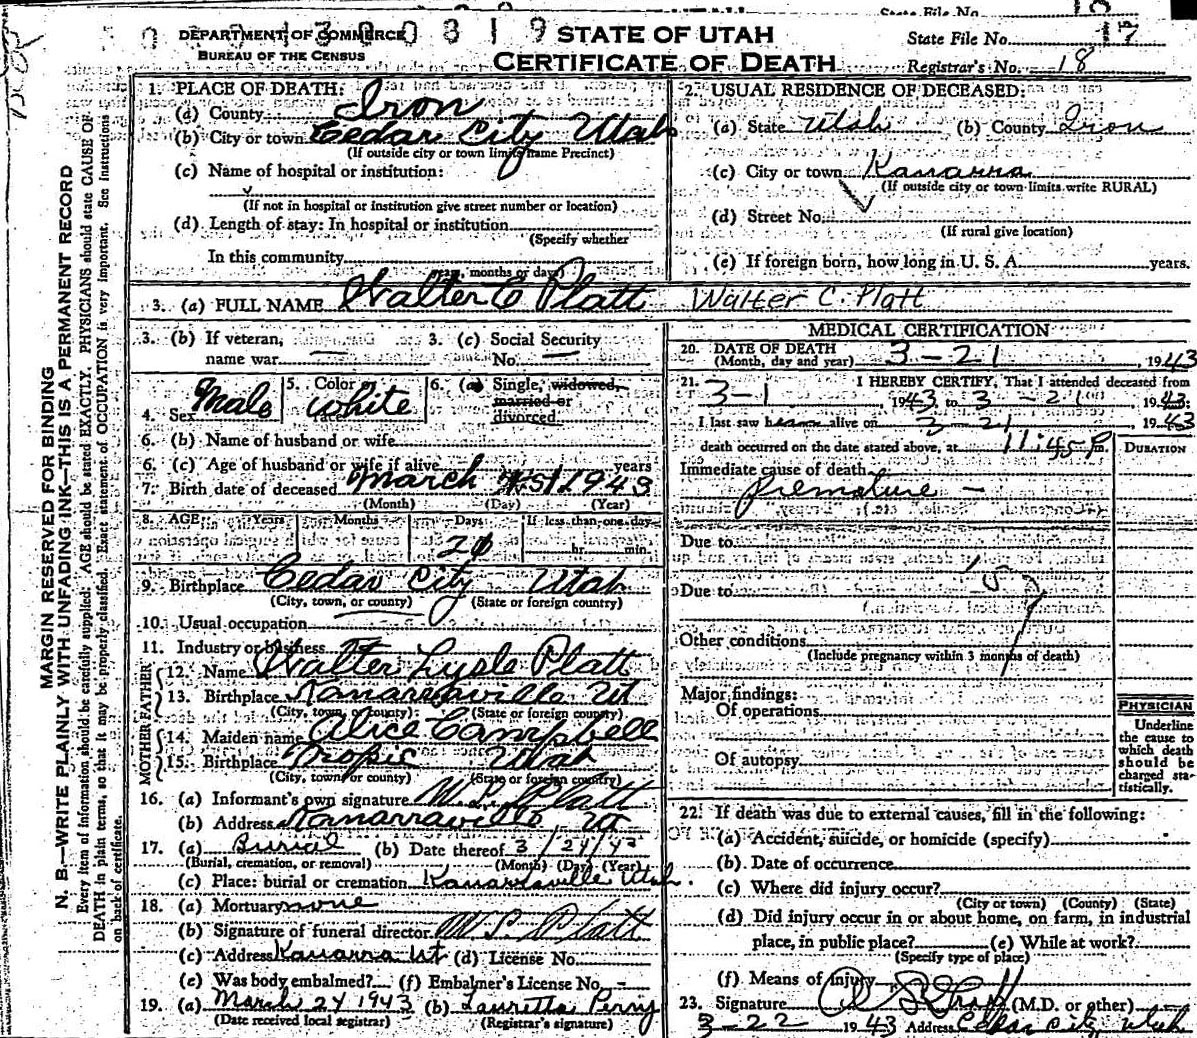 State File No. 18
DEPARTMENT OF COMMERCE
BUREAU OF THE CENSUS
STATE OF UTAH
CERTIFICATE OF DEATH
State File No. 17
Registrar's No. 18
MARGIN RESERVED FOR BINDING
N. B.—WRITE PLAINLY WITH UNFADING INK—THIS IS A PERMANENT RECORD
Every item of information should be carefully supplied. AGE should be stated EXACTLY. PHYSICIANS should state CAUSE OF
DEATH in plain terms, so that it may be properly classified. Exact statement of OCCUPATION is very important. See instructions
on back of certificate.
1. PLACE OF DEATH:
(a) County Iron
(b) City or town Cedar City Utah
(If outside city or town limits name Precinct)
(c) Name of hospital or institution:
(If not in hospital or institution give street number or location)
(d) Length of stay: In hospital or institution
(Specify whether
In this community
years, months or days)
2. USUAL RESIDENCE OF DECEASED:
(a) State Utah (b) County Iron
(c) City or town Kanarra
(If outside city or town limits write RURAL)
(d) Street No.
(If rural give location)
(e) If foreign born, how long in U. S. A. years.
3. (a) FULL NAME Walter C Platt Walter C. Platt
3. (b) If veteran, name war — 3. (c) Social Security No. —
4. Sex Male 5. Color or race White 6. (a) Single, widowed, married or divorced
6. (b) Name of husband or wife
6. (c) Age of husband or wife if alive years
7. Birth date of deceased March 1st 1943
(Month) (Day) (Year)
8. AGE Years Months Days If less than one day
20 hr. min.
9. Birthplace Cedar City Utah
(City, town, or county) (State or foreign country)
10. Usual occupation
11. Industry or business
FATHER
12. Name Walter Lysle Platt
13. Birthplace Kanarraville Ut
(City, town, or county) (State or foreign country)
MOTHER
14. Maiden name Alice Campbell
15. Birthplace Tropic Utah
(City, town or county) (State or foreign country)
16. (a) Informant's own signature W. L. Platt
(b) Address Kanarraville Ut
17. (a) Burial (b) Date thereof 3/24/43
(Burial, cremation, or removal) (Month) (Day) (Year)
(c) Place: burial or cremation Kanarraville Utah.
18. (a) Mortuary none
(b) Signature of funeral director W L Platt
(c) Address Kanarra Ut (d) License No.
(e) Was body embalmed? (f) Embalmer's License No. -
19. (a) March 24 1943 (b) Lauretta Perry
(Date received local registrar) (Registrar's signature)
MEDICAL CERTIFICATION
20. DATE OF DEATH 3-21, 1943
(Month, day and year)
21. I HEREBY CERTIFY, That I attended deceased from
3-1 1943 to 3-21 1943;
I last saw him alive on 3-21 1943
death occurred on the date stated above, at 11:45 P m. DURATION
Immediate cause of death
Premature -
Due to
Due to
Other conditions
(Include pregnancy within 3 months of death)
Major findings:
Of operations
Of autopsy
PHYSICIAN
Underline
the cause to
which death
should be
charged sta-
tistically.
22. If death was due to external causes, fill in the following:
(a) Accident, suicide, or homicide (specify)
(b) Date of occurrence
(c) Where did injury occur?
(City or town) (County) (State)
(d) Did injury occur in or about home, on farm, in industrial
place, in public place? (e) While at work?
(Specify type of place)
(f) Means of Injury
23. Signature (M.D. or other)
3-22 1943 Address Cedar City Utah